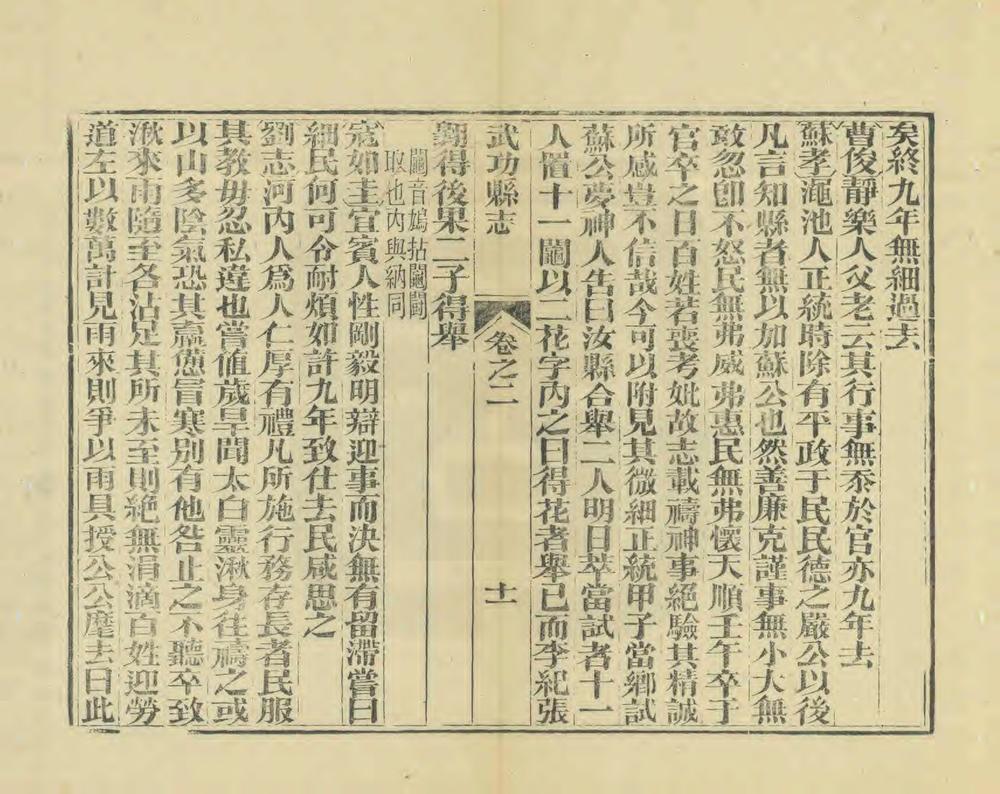 矣終九年無細過去
曹俊靜樂人父老云其行事無忝於官亦九年去
蘇孝澠池人正統時除有平政于民民德之嚴公以後
凡言知縣者無以加蘇公也然善廉克謹事無小大無
敢忽卽不怒民無弗威弗惠民無弗懷天順壬午卒于
官卒之日百姓若喪考妣故志載禱神事絕驗其精誠
所感豈不信哉今可以附見其微細正統甲子當鄉試
蘇公夢神人告曰汝縣合舉二人明日萃當試者十一
人置十一鬮以二花字內之曰得花者舉已而李紀張
武功縣志
卷之二
十一
翺得後果二子得舉
鬮音 拈鬮鬮
取也內與納同
寇如圭宜賓人性剛毅明辯迎事而決無有留滯嘗曰
細民何可令耐煩如許九年致仕去民咸思之
劉志河內人爲人仁厚有禮凡所施行務存長者民服
其教毋忍私違也嘗值歲旱聞太白靈湫身往禱之或
以山多陰氣恐其羸憊冒寒別有他咎止之不聽卒致
湫來雨隨至各沾足其所未至則絕無涓滴百姓迎勞
道左以數萬計見雨來則爭以雨具授公公麾去曰此